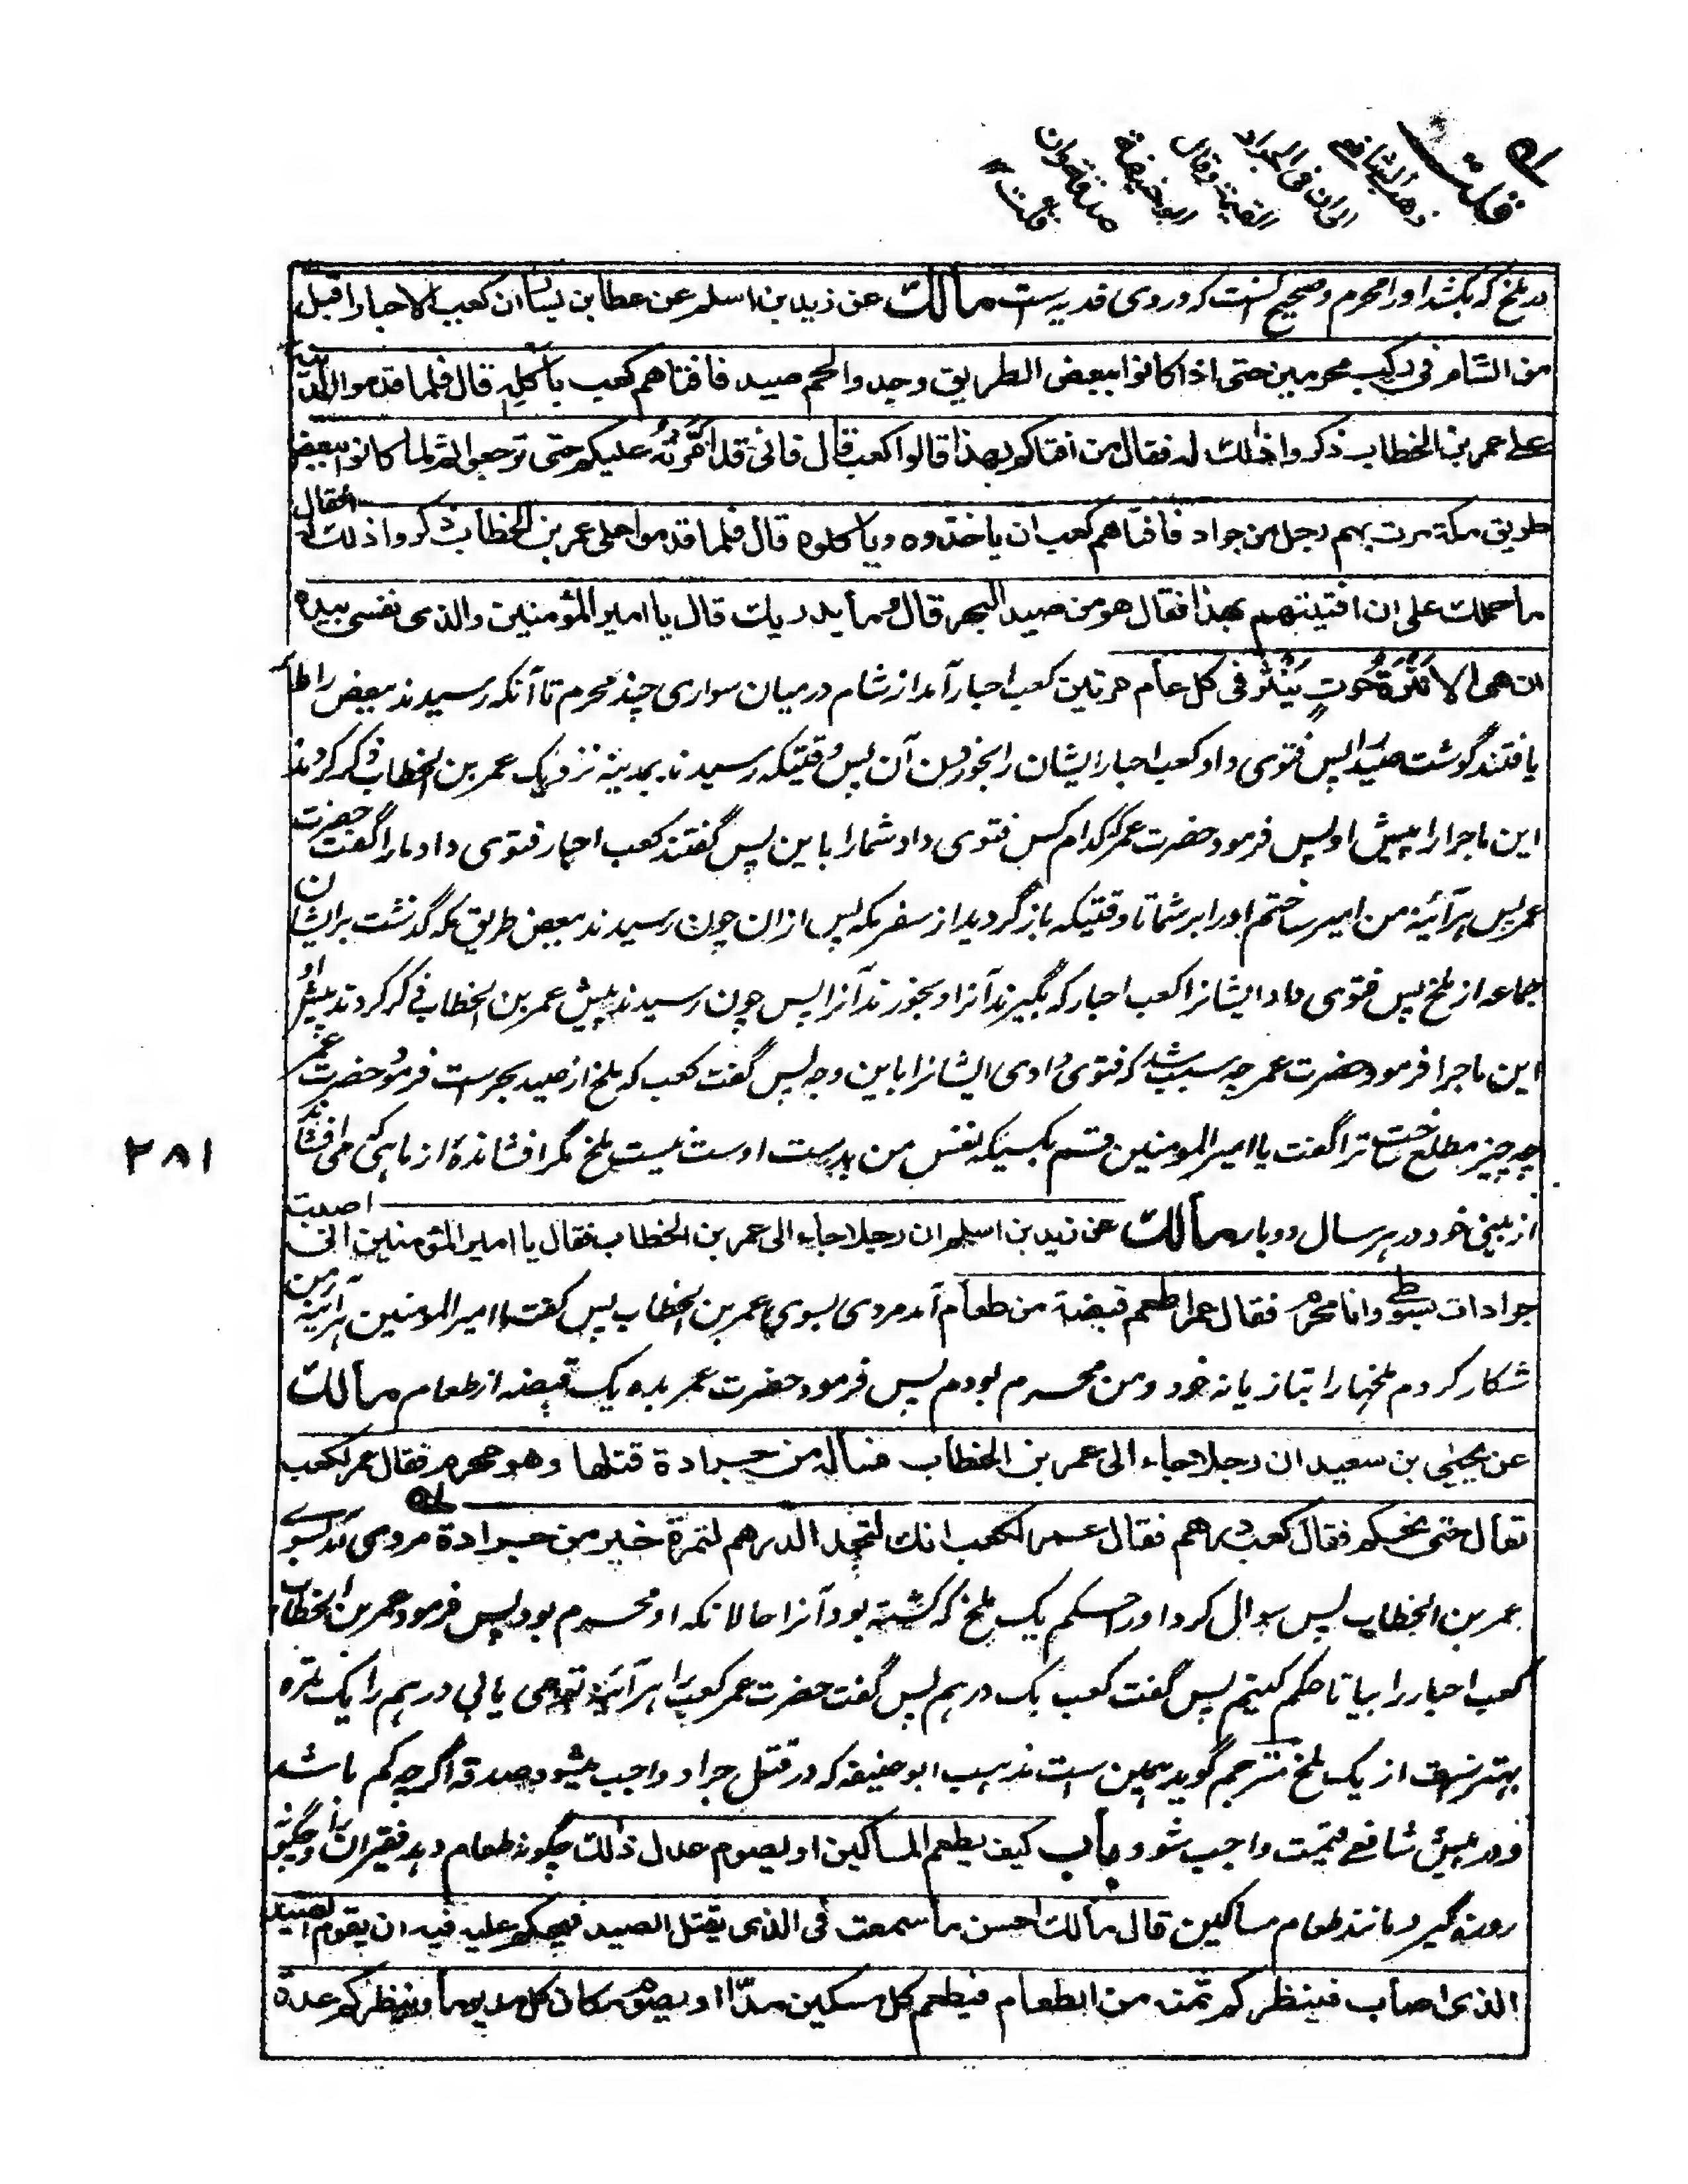 قلت
ذهب الشافعي
الى ان في الجراد
القيمة وقال
ابو حنيفة
صدقة وان
قلت
در ملخ که بکشد او را محرم وصحیح آنست که در وی فدیه است مالك عن زيد بن اسلم عن عطا بن يسار ان كعب الاحبار اقبل
من الشام في ركب محرمين حتى اذا كانوا ببعض الطريق وجدوا لحم صيد فافتاهم كعب بأكله قال فلما قدموا المدينة
على عمر بن الخطاب ذكروا ذلك له فقال من افتاكم بهذا قالوا كعب قال فاني قد امّرته عليكم حتى ترجعوا ثم لما كانوا ببعض
طريق مكة مرت بهم رجل من جراد فافتاهم كعب ان ياخذوه وياكلوه قال فلما قدموا على عمر بن الخطاب ذكروا ذلك له فقال
ما حملك على ان افتيتهم بهذا فقال هو من صيد البحر قال وما يدريك قال يا امير المؤمنين والذي نفسي بيده
ان هي الا نثرة حوت ينثره في كل عام مرتين کعب احبار آمد از شام در میان سواری چند محرم تا آنکه رسیدند ببعض راه
یافتند گوشت صید را پس فتوی داد کعب احبار ایشان را بخوردن آن پس وقتیکه رسیدند بمدینه نزدیک عمر بن الخطاب ذکر کردند
این ماجرا را پیش او پس فرمود حضرت عمر که کدام کس فتوی داد شما را باین پس گفتند کعب احبار فتوی داد ما را گفت حضرت
عمر پس هر آئینه من امیر ساختم او را بر شما تا وقتیکه باز گردید از سفر مکه پس ازان چون رسیدند ببعض طریق مکه گذشت بر ایشان
جماعه از ملخ پس فتوی داد ایشانرا کعب احبار که بگیرند آنرا و بخورند آنرا پس چون رسیدند پیش عمر بن الخطاب ذکر کردند پیش او
این ماجرا فرمود حضرت عمر چه سبب شد که فتوی دادی ایشانرا باین وجه پس گفت کعب که ملخ از صید بحر است فرمود حضرت عمر
چه چیز مطلع ساخت ترا گفت یا امیر المومنین قسم بکسیکه نفس من بدست اوست نیست ملخ مگر افشاندۀ از ماهی که می افشاند
از بینی خود در هر سال دو بار مالك عن زيد بن اسلم ان رجلا جاء الى عمر بن الخطاب فقال يا امير المؤمنين اني اصبت
جرادات بسوطي وانا محرم فقال عمر اطعم قبضة من طعام آمد مردی بسوی عمر بن الخطاب پس گفت یا امیر المومنین هر آئینه من
شکار کردم ملخها را بتازیانه خود و من محرم بودم پس فرمود حضرت عمر بده یک قبضه از طعام مالك
عن يحيى بن سعيد ان رجلا جاء الى عمر بن الخطاب فساله من جرادة قتلها وهو محرم فقال عمر لكعب
تعال حتى نحكم فقال كعب درهم فقال عمر لكعب انك لتجد الدراهم لتمرة خير من جرادة مردی آمد بسوی
عمر بن الخطاب پس سوال کرد او را حکم یک ملخ که کشته بود آنرا حالانکه او محرم بود پس فرمود عمر بن الخطاب
کعب احبار را بیا تا حکم کنیم پس گفت کعب یک درهم پس گفت حضرت عمر کعب را هر آئینه تو می یابی درهم را یک تمره
بهتر است از یک ملخ مترجم گوید همین است مذهب ابو حنیفه که در قتل جراد واجب میشود صدقه اگرچه کم باشد
و در پیش شافعے قیمت واجب شود باب كيف يطعم المساكين او يصوم عدل ذلك چگونه طعام دهد فقیران را و چگونه
روزه گیرد مانند طعام مساکین قال مالك احسن ما سمعت في الذي يقتل الصيد فيحكم عليه فيه ان يقوم الصيد
الذي اصاب فينظر كم ثمنه من الطعام فيطعم كل مسكين مدّا او يصوم مكان كل مد يوما وينظر كم عدة
٢٨١